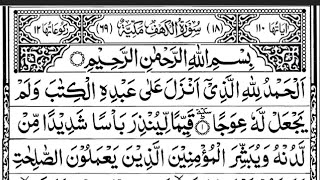 اٰیَاتُهَا ١١٠ (١٨) سُوْرَةُ الْكَهْفِ مَكِّيَّةٌ (٦٩) رُكُوْعَاتُهَا ١٢
بِسْمِ اللّٰهِ الرَّحْمٰنِ الرَّحِيْمِ ۝
اَلْحَمْدُ لِلّٰهِ الَّذِيْۤ اَنْزَلَ عَلٰى عَبْدِهِ الْكِتٰبَ وَلَمْ
يَجْعَلْ لَّهٗ عِوَجًا ۝ قَيِّمًا لِّيُنْذِرَ بَاْسًا شَدِيْدًا مِّنْ
لَّدُنْهُ وَيُبَشِّرَ الْمُؤْمِنِيْنَ الَّذِيْنَ يَعْمَلُوْنَ الصّٰلِحٰتِ